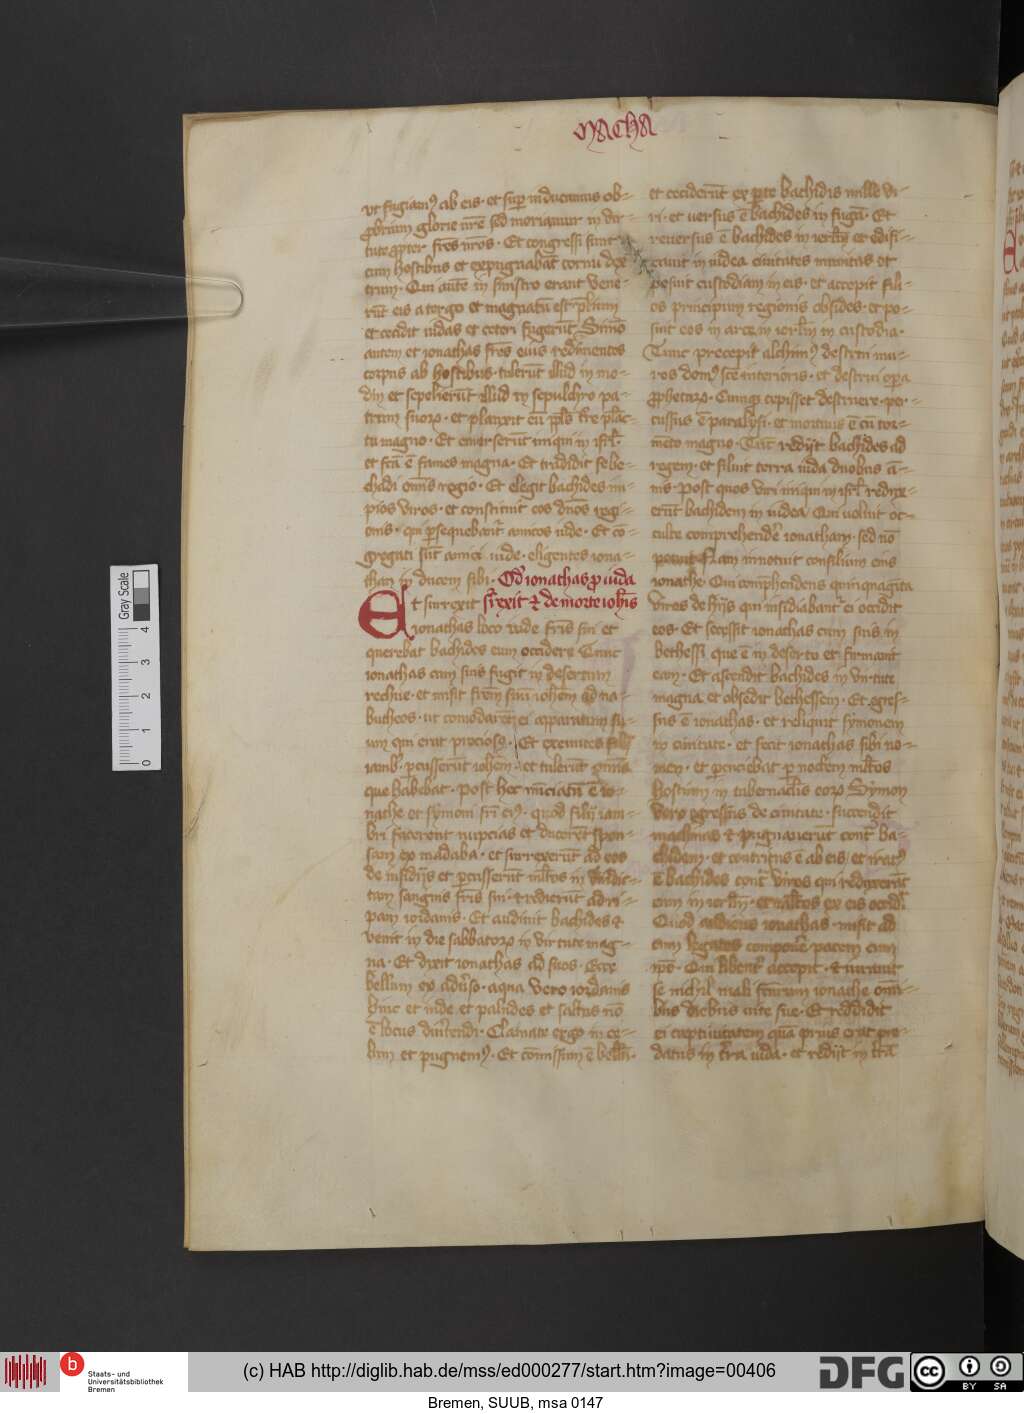 Macha
ut fugiam9 ab eis · et sup inducimus ob-
probrium glorie nr̄e sed moriamur in vir-
tute propter fr̄es nr̄os · Et congressi sunt
cum hostibus et expugnabāt cornu dex-
trum · Qui autē in sinistro erant vene-
rūt eis a tergo et magnatū est plium
et cecidit iudas et ceteri fugerūt Simō
autem et ionathas fr̄es eius redimentes
corpus ab hostibus · tulerūt illud in mo-
din et sepelierūt illud in sepulchro pa-
trum suorꝝ · et planxit eū ppl̄s isrl̄ planc-
tu magno · Et emerserūt iniqui in isrl̄ ·
et fcā ē fames magna · Et tradidit se be-
chadi omīs regio · Et elegit bachides im-
pios viros · et constituit eos dn̄os regi-
onis · qui psequebant̄ amicos iude · Et cō-
gregati sūt amici iude · eligentes iona-
tham ip̄ ducem sibi · Qd̄ ionathas p iuda
Et surrexit sr̄exit ⁊ de morte ioh̄is
ionathas loco iude fr̄is sui et
querebat bachides eum occidere Tunc
ionathas cum suis fugit in desertum
rechue · et misit frēm suū iohēm ad na-
butheos · ut comodarent ei apparatum su-
um qui erat preciosꝰ · Et exeuntes filij
iambri pcusserūt iohēm · et tulerūt omīa
que habebat · Post hec nūciatū ē io-
nathe et symoni fr̄i eiꝰ · quod filij iam-
bri facerent nupcias et ducerēt spon-
sam ex madaba · et surrexerūt ad eos
de insidijs et pcusserūt ml̄tos in vindic-
tam sangnis fr̄is sui · ⁊ redierūt ad ri-
pam iordanis · Et audiuit bachides ⁊
venit in die sabbatorꝝ in virtute mag-
na · Et dixit ionathas ad suos · Ecce
bellum ex adūso · aqua vero iordanis
hinc et inde et paludes et saltus nō
ē locus diūtendi · Clamate ergo in ce-
lum et pugnemꝰ · Et cōmissum ē bellū ·
et ceciderūt ex pte bachidis mille vi-
ri · et uersus ē bachides in fugā · Et
reuersus ē bachides in ierlm̄ et edifi-
cauit in iudea ciuitates munitas et
posuit custodiam in eis · et accepit fili-
os principum regionis obsides · et po-
suit eos in arce in ierlm̄ in custodia ·
Tunc precepit alchimꝰ destrui mu-
ros domꝰ scē interioris · et destrui opa
prophetarꝝ · Cumqȝ cepisset destruere · per-
cussus ē paralysi · et mortuus ē cū tor-
mēto magno · Tūc redijt bachides ad
regem · et siluit terra iuda duobus an-
nis · Post quos viri iniqui in isrl̄ reduxe-
erūt bachidem in iudea Qui voluit oc-
culte comprehendē ionatham · sed nō
potuit Nam innotuit consilium eius
ionathe · Qui comphendens quinquagīta
viros de hijs qui insidiabant̄ ei occidit
eos · Et secessit ionathas cum suis in
bethessi que ē in deserto et firmauit
eam · Et ascendit bachides in virtute
magna et obsedit bethessem · Et egres-
sus ē ionathas · et reliquit symonem
in ciuitate · et fecit ionathas sibi no-
men · et pcuciebat p noctem ml̄tos
hostium in tabernacl̄is eorꝝ Symon
vero egressus de ciuitate · succendit
machinas ⁊ pugnauerūt contr̄ ba-
chidem · et contritus ē ab eis et iratꝰ
ē bachides contr̄ viros qui reduxerāt
eum in ierlm̄ · et ml̄tos ex eis occid̄ ·
Quod audiens ionathas · misit ad
eum legatos componē pacem cum
ip̄o · Qui libent̄ accepit · ⁊ iurauit
se nichil mali fcūrum ionathe omī-
bus diebus vite sue · Et reddidit
ei captiuitatem quā prius erat pre-
datus in tr̄ra iuda · et redijt in tr̄ā
Gray Scale
4
3
2
1
0
b
Staats- und
Universitätsbibliothek
Bremen
(c) HAB http://diglib.hab.de/mss/ed000277/start.htm?image=00406
DFG
cc
BY
SA
Bremen, SUUB, msa 0147